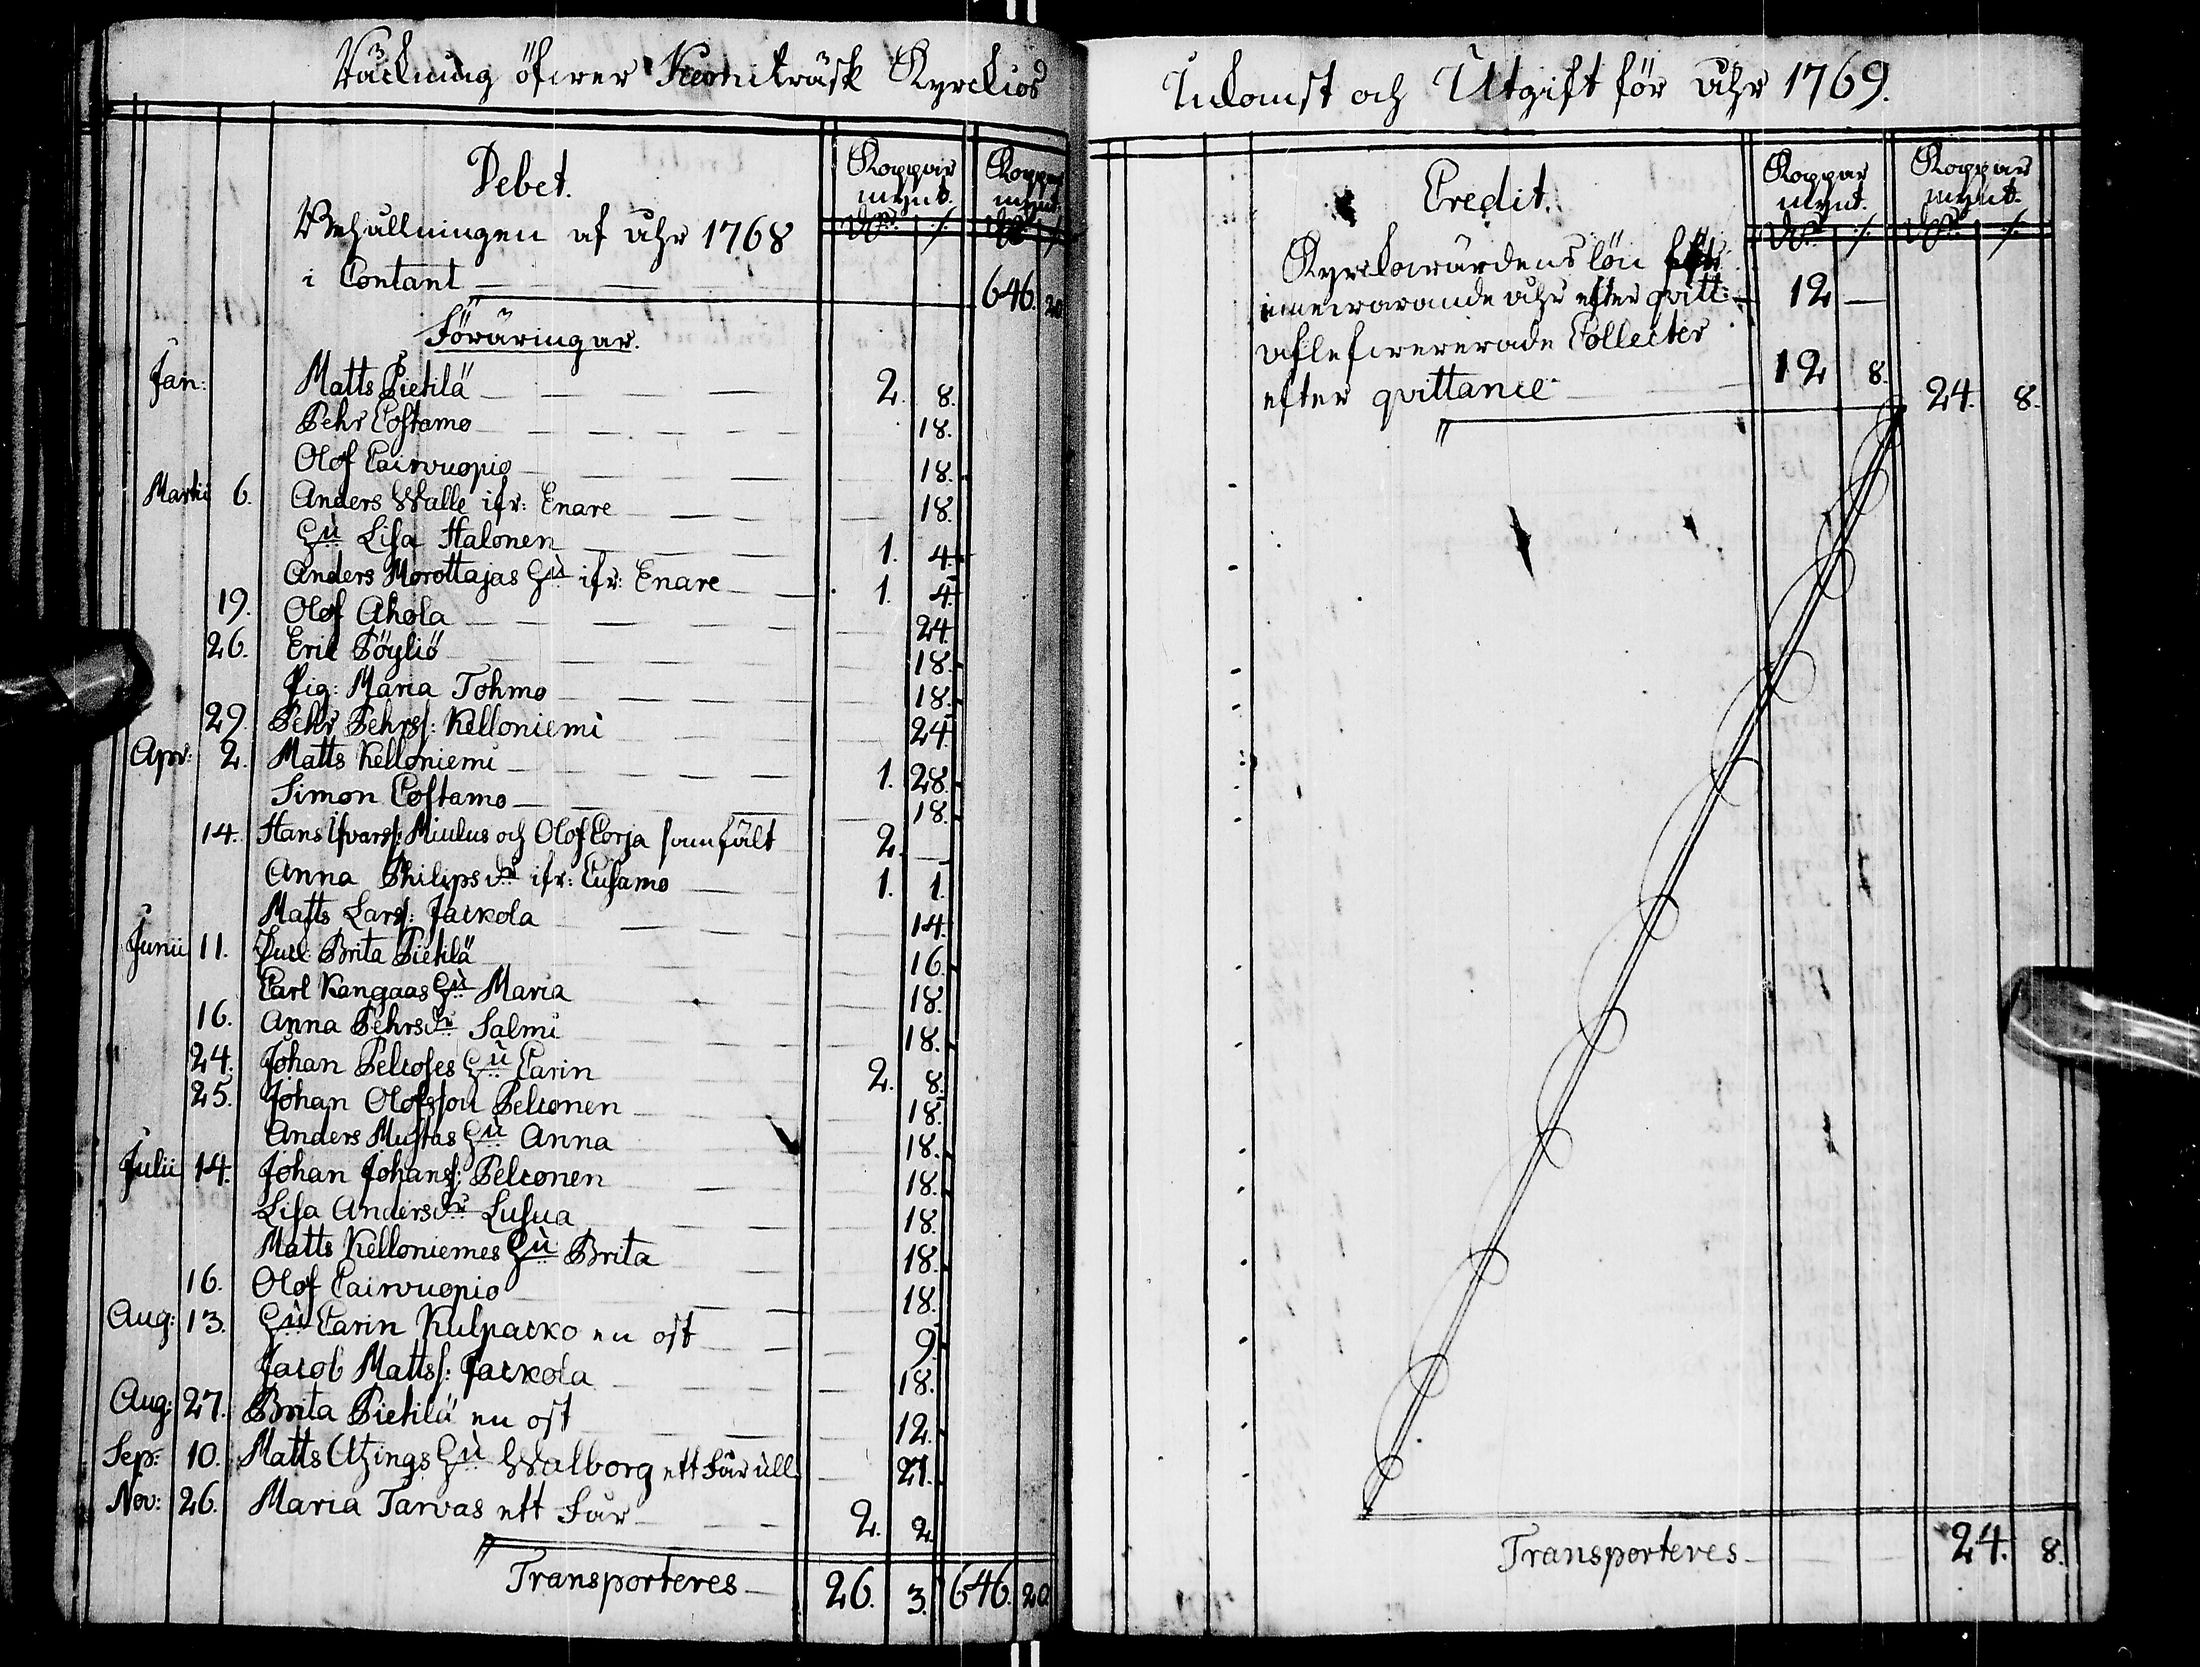 Räckning öfwer Kemiträsk Kyrckios
Debet.
Koppar mynt.
Koppar mynt.
Behållningen af åhr 1768
i Contant 646. 20
Föräringar.
Jan: Matts Pietilä 2. 8.
Pehr Costamo 18.
Olof Cairvuopio 18.
Martii 6. Anders Walle ifr: Enare 18.
Hu Lisa Halonen 1. 4.
Anders Morottajas Hu ifr: Enare 1. 4.
19. Olof Ahola 24.
26. Eric Pöyliö 18.
Pig: Maria Tohmo 18.
29. Pehr Pehrss: Kelloniemi 24.
Apr: 2. Matts Kelloniemi 1. 28.
Simon Costamo 18.
14. Hans Ifvarss: Miulus och Olof Corja samfält 2. —
Anna Philipsdr ifr: Cusamo 1. 1.
Matts Larss: Jackola 14.
Junii 11. Brita Pietilä 16.
Carl Kangaas Hu Maria 18.
16. Anna Pehrsdr Salmi 18.
24. Johan Pelcoses Hu Carin 2. 8.
25. Johan Olofsson Pelconen 18.
Anders Mustas Hu Anna 18.
Julii 14. Johan Johanss: Pelconen 18.
Lisa Andersdr Lusua 18.
Matts Kelloniemes Hu Brita 18.
16. Olof Cairvuopio 18.
Aug: 13. Hu Carin Kulpacko en ost 9.
Jacob Mattss: Jackola 18.
Aug: 27. Brita Pietilä en ost 12.
Sep: 10. Matts Utzings Hu Walborg ett får ull 21.
Nov: 26. Maria Tarvas ett får 2. 2.
Transporteres 26. 3. 646. 20
Inkomst och Utgift för åhr 1769.
Credit.
Koppar mynt.
Koppar mynt.
Kyrckowärdens lön för
innewarande åhr efter qvitt: 12 —
aflefwererade Collecter
efter qvittance 12 8. 24. 8.
Transporteres 24. 8.